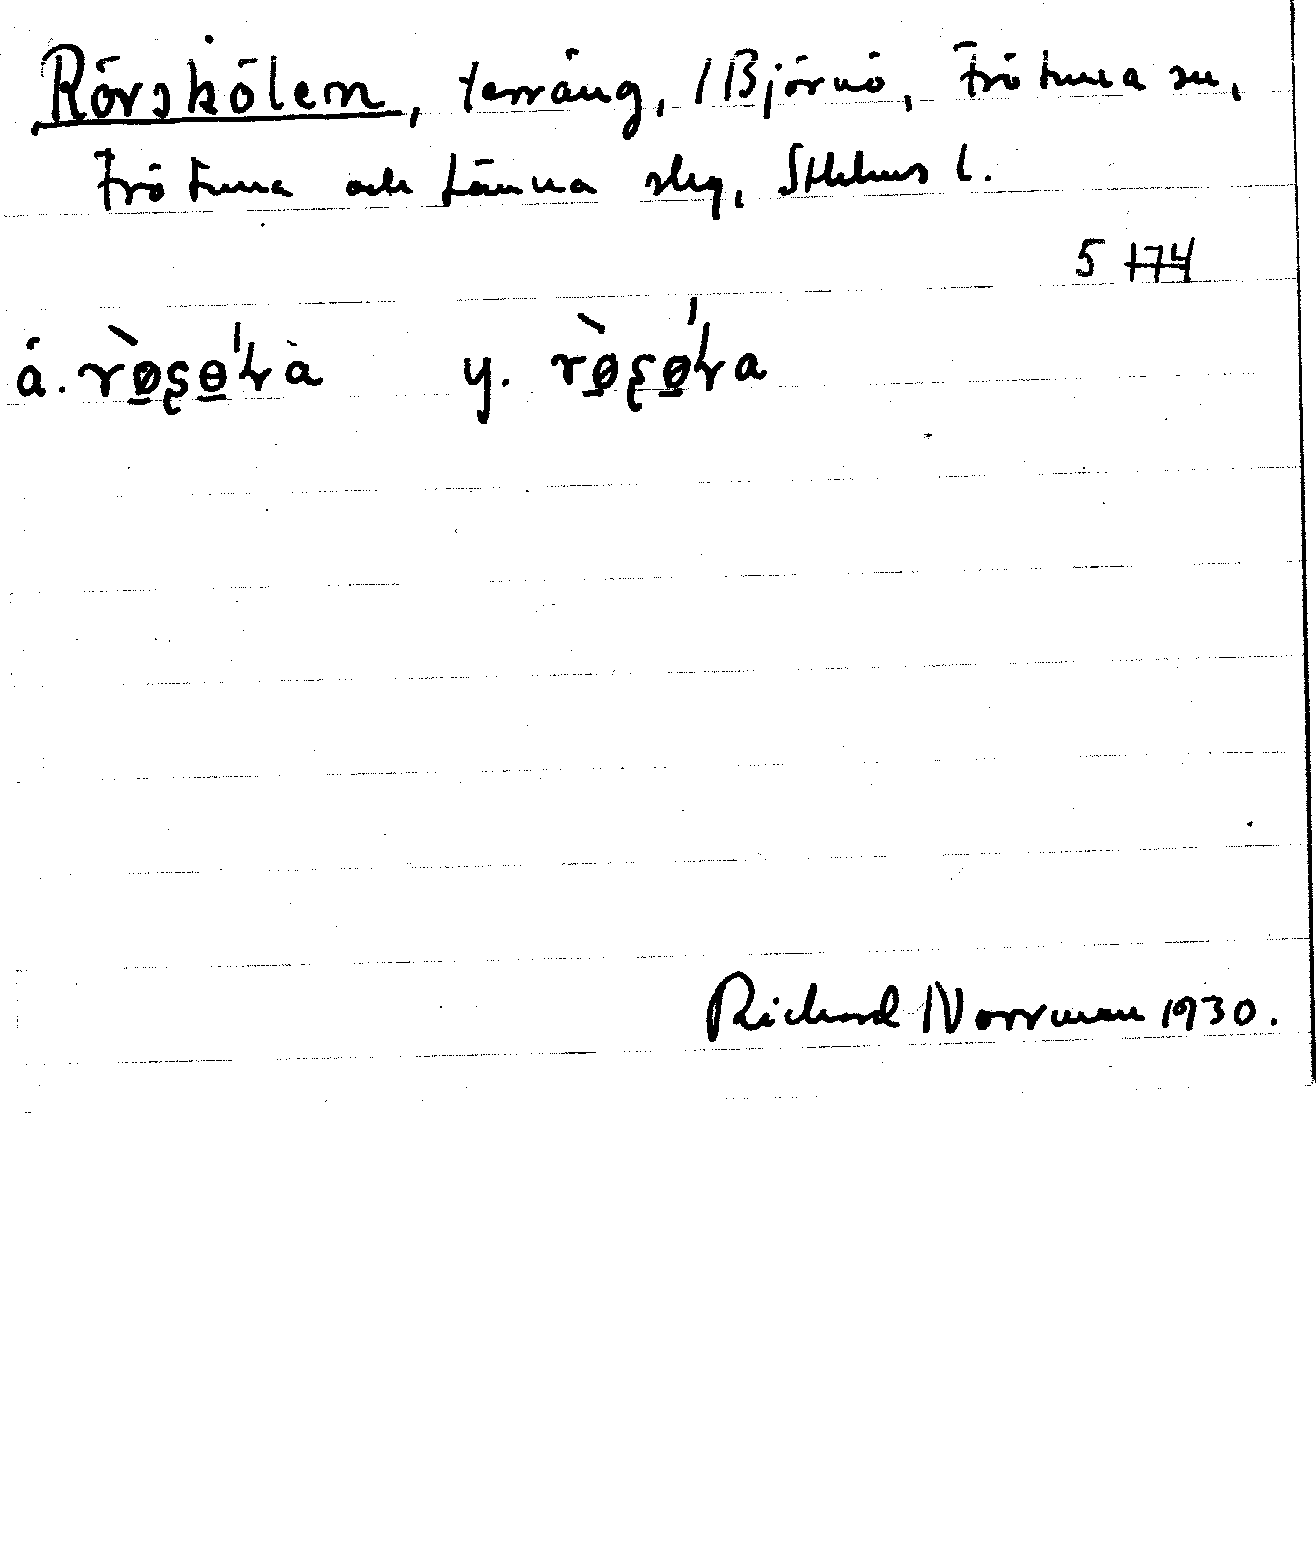 Rörskölen, terräng, /Björnö, Frötuna sn,
Frötuna och Länna slg, Sthlms l.
5 174
ä. 
y. 
Richard Norrman 1930.